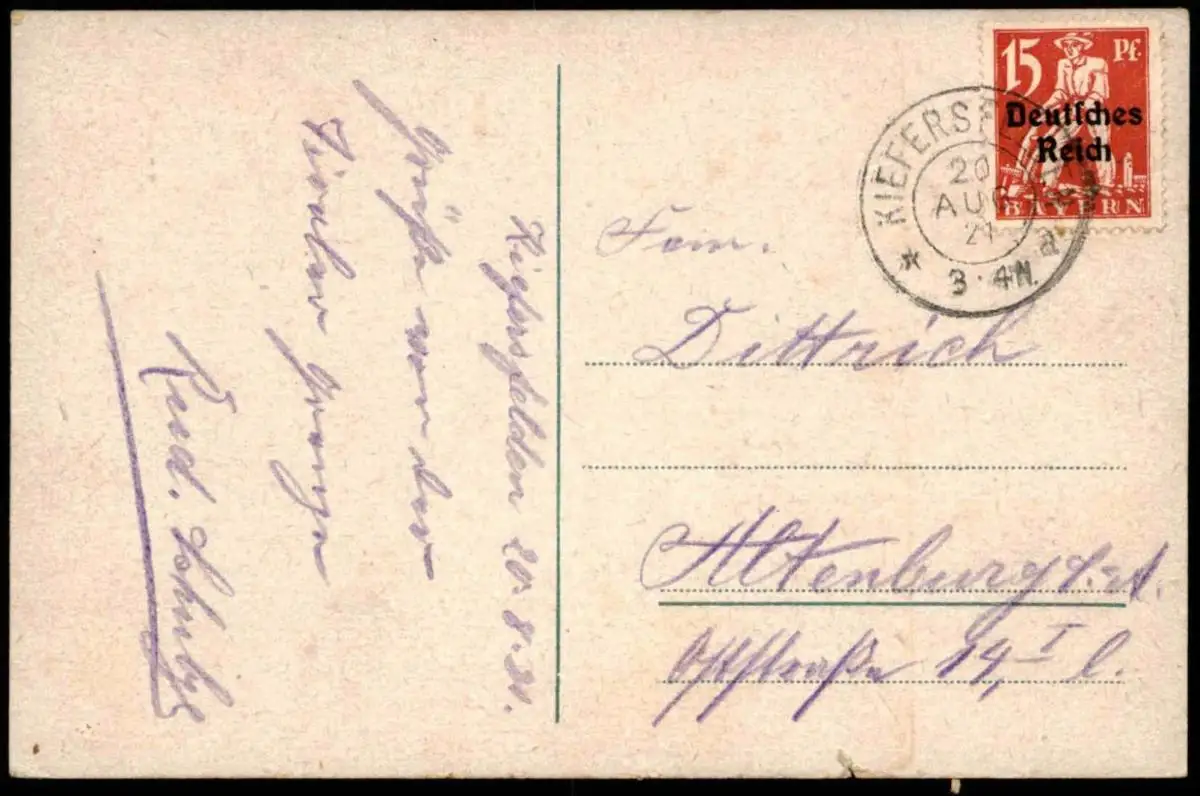 Kiefersfelden 20.8.21.
Grüße von der
Tiroler Grenze
Rud.
15 Pf.
Deutsches
Reich
BAYERN
KIEFERSFELDEN
20
AUG
21
3-4N.
* a
Fam.
Dittrich
Altenburg S.A.
Oststraße 14, I l.